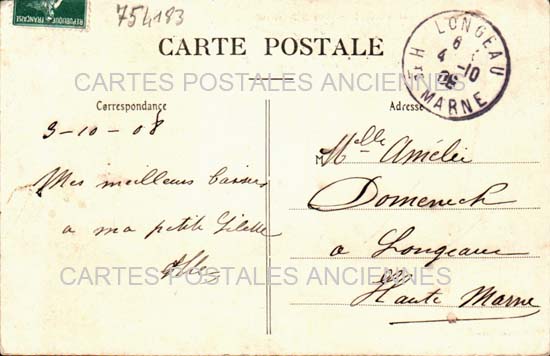 RÉPUBLIQUE FRANÇAISE
754183
CARTE POSTALE
LONGEAU
6
4-10
08
Hte MARNE
CARTES POSTALES ANCIENNES
Correspondance
Adresse
3-10-08
Mes meilleurs baisers
a ma petite
M Melle Amélie
Domenech
a Longeau
Haute Marne
CARTES POSTALES ANCIENNES